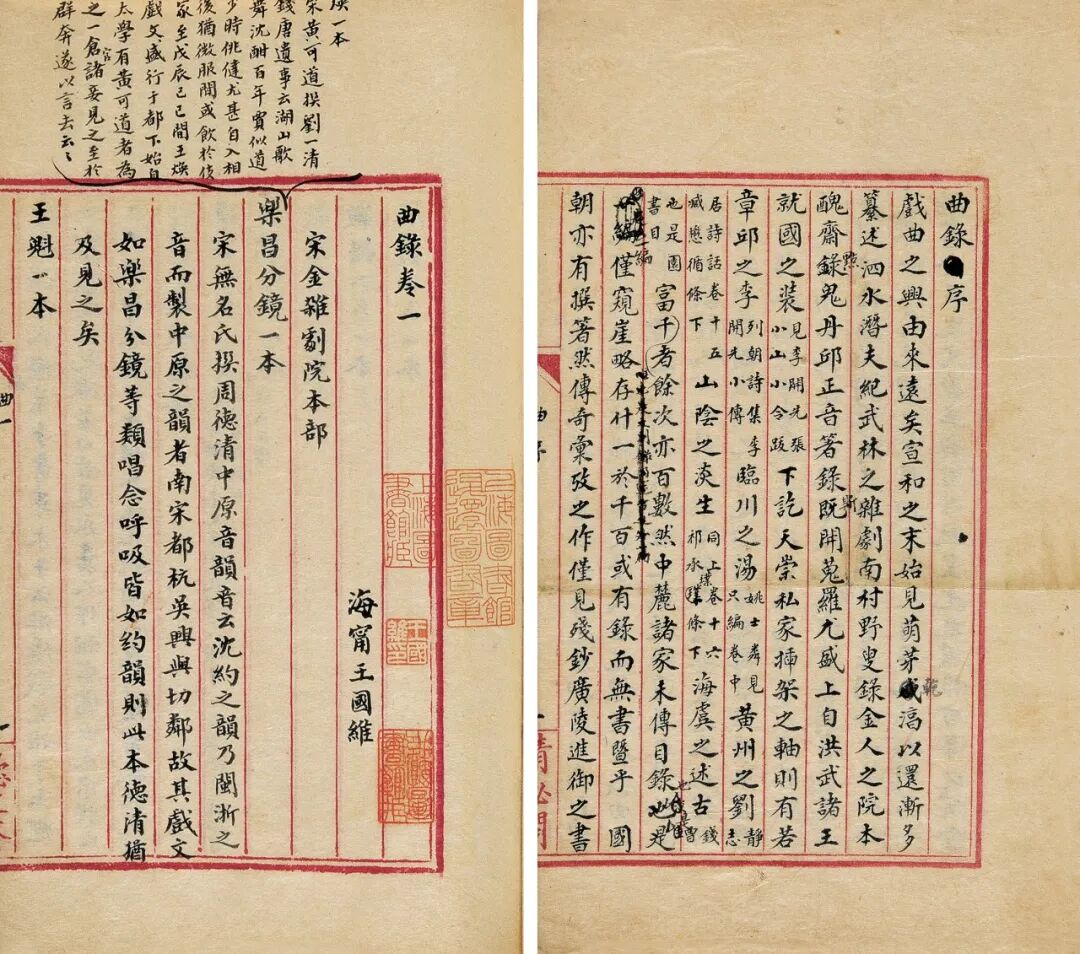 曲錄序
戲曲之興由來遠矣宣和之末始見萌芽乾淳以還漸多
纂述泗水潛夫紀武林之雜劇南村野叟錄金人之院本
醜齋點鬼丹邱正音著錄斯開蒐羅尤盛上自洪武諸王
就國之裝見李開先張小山小令跋下訖天崇私家插架之軸則有若
章邱之李列朝詩集李開先小傳臨川之湯姚士粦見只編卷中黃州之劉靜志
居詩話卷十五臧懋循條下山陰之淡生同上卷十六祁承㸁條下海虞之述古錢曾
也是園書目富千者餘次亦百數然中麓諸家未傳目錄也是
一編僅窺崖略存什一於千百或有錄而無書暨乎國
朝亦有撰著然傳奇彙攷之作僅見殘鈔廣陵進御之書
煥一本
宋黃可道撰劉一清
錢唐遺事云湖山歌
舞沈酣百年賈似道
少時佻健尤甚自入相
後猶微服間或飲於伎
家至戊辰己巳間王煥
戲文盛行于都下始自
太學有黃可道者為
之一倉官諸妾見之至於
群奔遂以言去云云
曲錄卷一
海甯王國維
宋金雜劇院本部
樂昌分鏡一本
宋無名氏撰周德清中原音韻音云沈約之韻乃閩浙之
音而製中原之韻者南宋都杭吳興與切鄰故其戲文
如樂昌分鏡等類唱念呼吸皆如約韻則此本德清猶
及見之矣
王魁一本